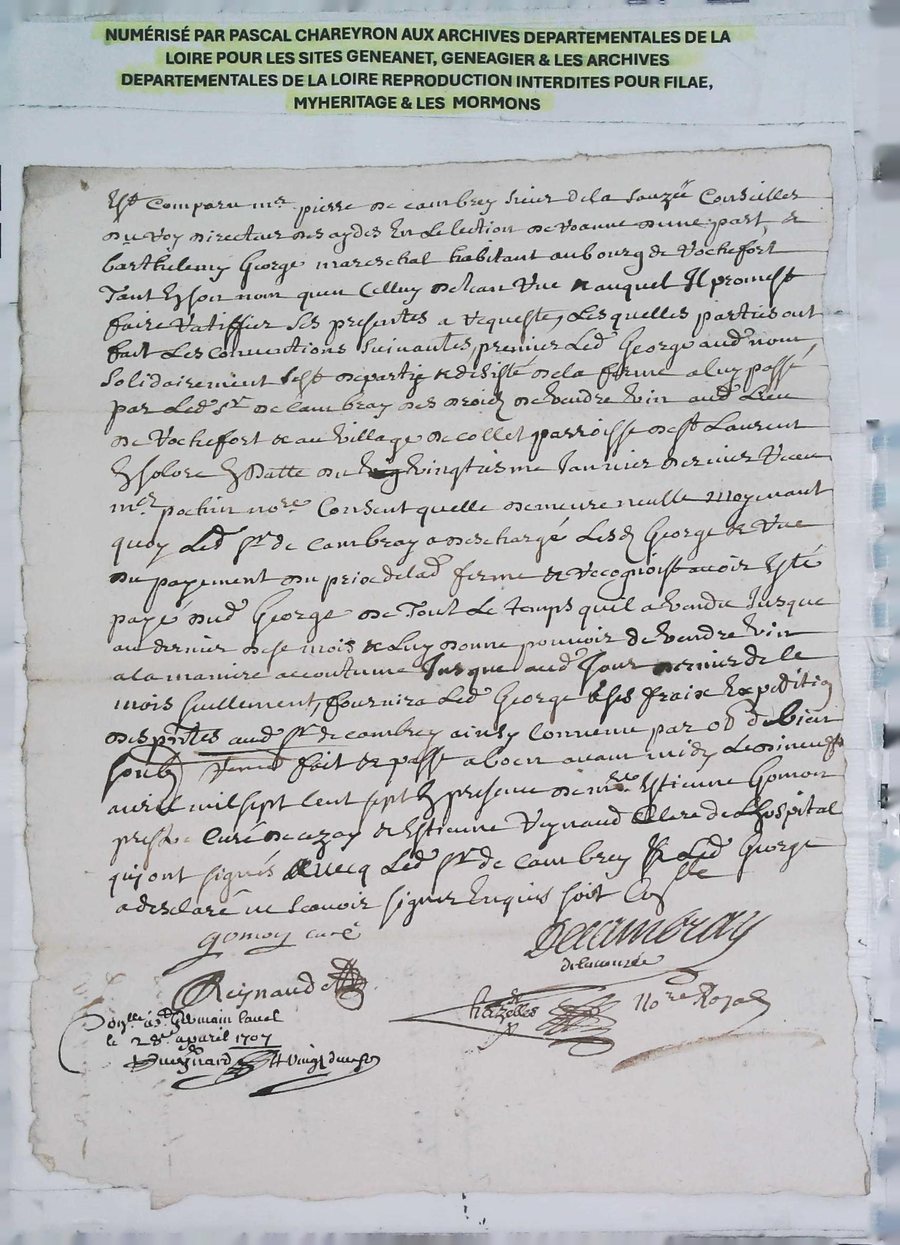 NUMÉRISÉ PAR PASCAL CHAREYRON AUX ARCHIVES DEPARTEMENTALES DE LA
LOIRE POUR LES SITES GENEANET, GENEAGIER & LES ARCHIVES
DEPARTEMENTALES DE LA LOIRE REPRODUCTION INTERDITES POUR FILAE,
MYHERITAGE & LES MORMONS
Est Comparu mre pierre de cambrey sieur de la Conseiller
du Roy directeur des aydes En Lelection de Roanne dune part, &
barthelemy George mareschal habitant au bourg de Rochefort
Tant En son nom quen Celluy de Jean auquel Il promest
faire Ratiffier Ses presentes a Requeste, Lesquelles parties ont
fait Les conventions Suivantes, premier Led George aud nom
Solidairement Sest departie & desisté de la ferme a luy passé
par Led Sr de Cambray des droits de Vendre Vin aud Lieu
de Rochefort & au Village de collet parroisse de St Laurent
En solore En Datte du Vingtiesme Janvier dernier Receu
mre pochin nore Consent quelle demeure nulle moyenant
quoy Led Sr de Cambray a deschargé Lesd George &
du payement du prix de lad ferme & Recognoist avoir Esté
payé dud George de Tout Le temps quil a Vendu Jusque
au dernier de se mois & Luy donne pouvoir de Vendre Vin
a la maniere accoutume Jusque aud Jour dernier de le
mois Seullement, fournira Led George a ses fraix Expeditio
des pntes aud Sr de cambrey ainsy Convenu par
fait & passé a boen avant midy Le dineuf
avril mil sept Cent sept En presence de mre Estienne Gomoy
pres curé de cezay & Estienne Reynaud Clerc de Lhospital
qui ont signés avecq Led Sr de Cambrey & Led George
a desclaré ne Scavoir signer Enquis soit
gomoy curé
Decambray
Reynaud
nore Royal
a St Germain Laval
le 28e apvril 1707